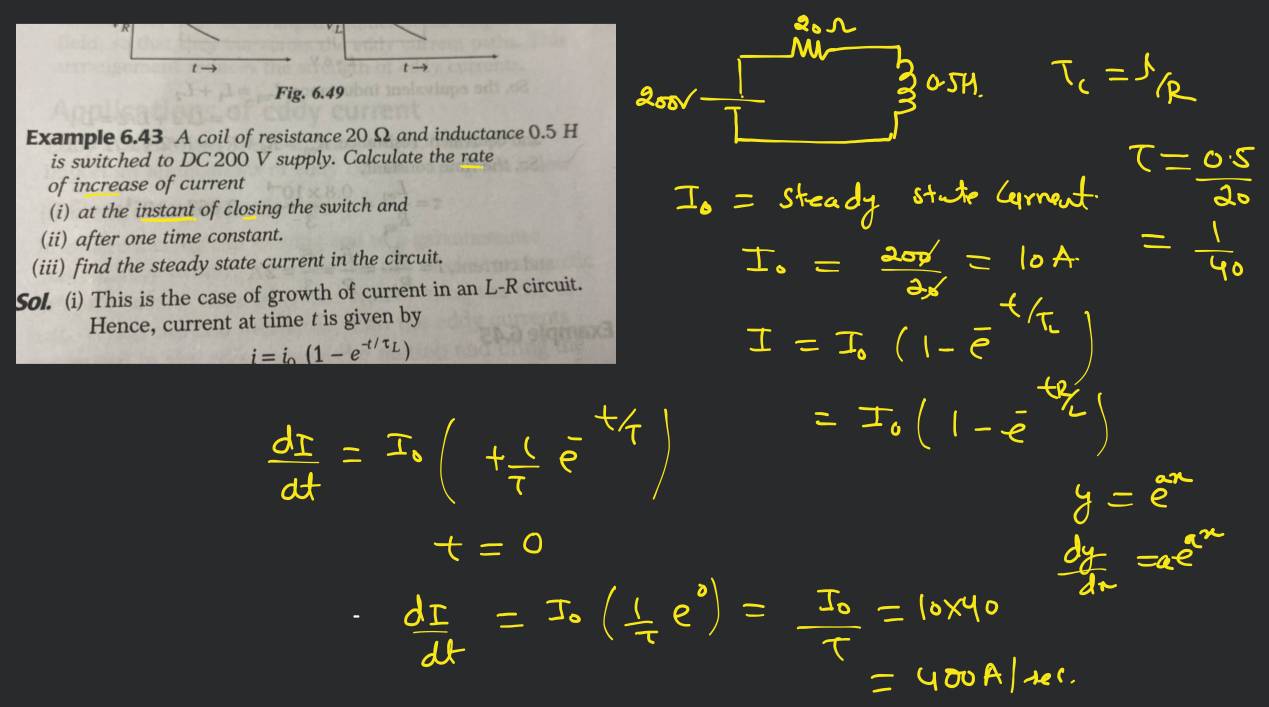 R
L
t→
t→
Fig. 6.49
Example 6.43 A coil of resistance 20 Ω and inductance 0.5 H
is switched to DC 200 V supply. Calculate the rate
of increase of current
(i) at the instant of closing the switch and
(ii) after one time constant.
(iii) find the steady state current in the circuit.
Sol. (i) This is the case of growth of current in an L-R circuit.
Hence, current at time t is given by
i = i₀ (1 − e^{-t/τL})
20Ω
200V
0.5H.
τ_L = L/R
τ = 0.5/20
= 1/40
I₀ = steady state current.
I₀ = 200/20 = 10 A.
I = I₀ (1 - e^{-t/τL})
= I₀ (1 - e^{-tR/L})
dI/dt = I₀ ( + 1/τ e^{-t/τ} )
t = 0
dI/dt = I₀ ( 1/τ e⁰ ) = I₀/τ = 10×40
= 400 A/sec.
y = e^{ax}
dy/dx = a e^{ax}